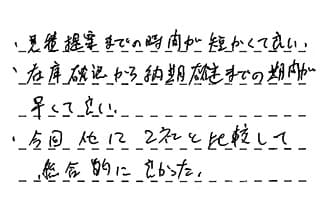 ・見積提案までの時間が短かくて良い。
・在庫確認から納期確定までの期間が
早くて良い。
・今回他に2社と比較して
総合的に良かった。